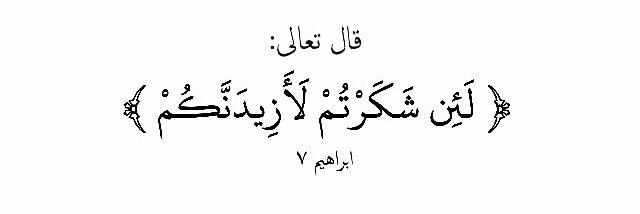 قال تعالى:
﴿ لَئِن شَكَرْتُمْ لَأَزِيدَنَّكُمْ ﴾
ابراهيم ٧